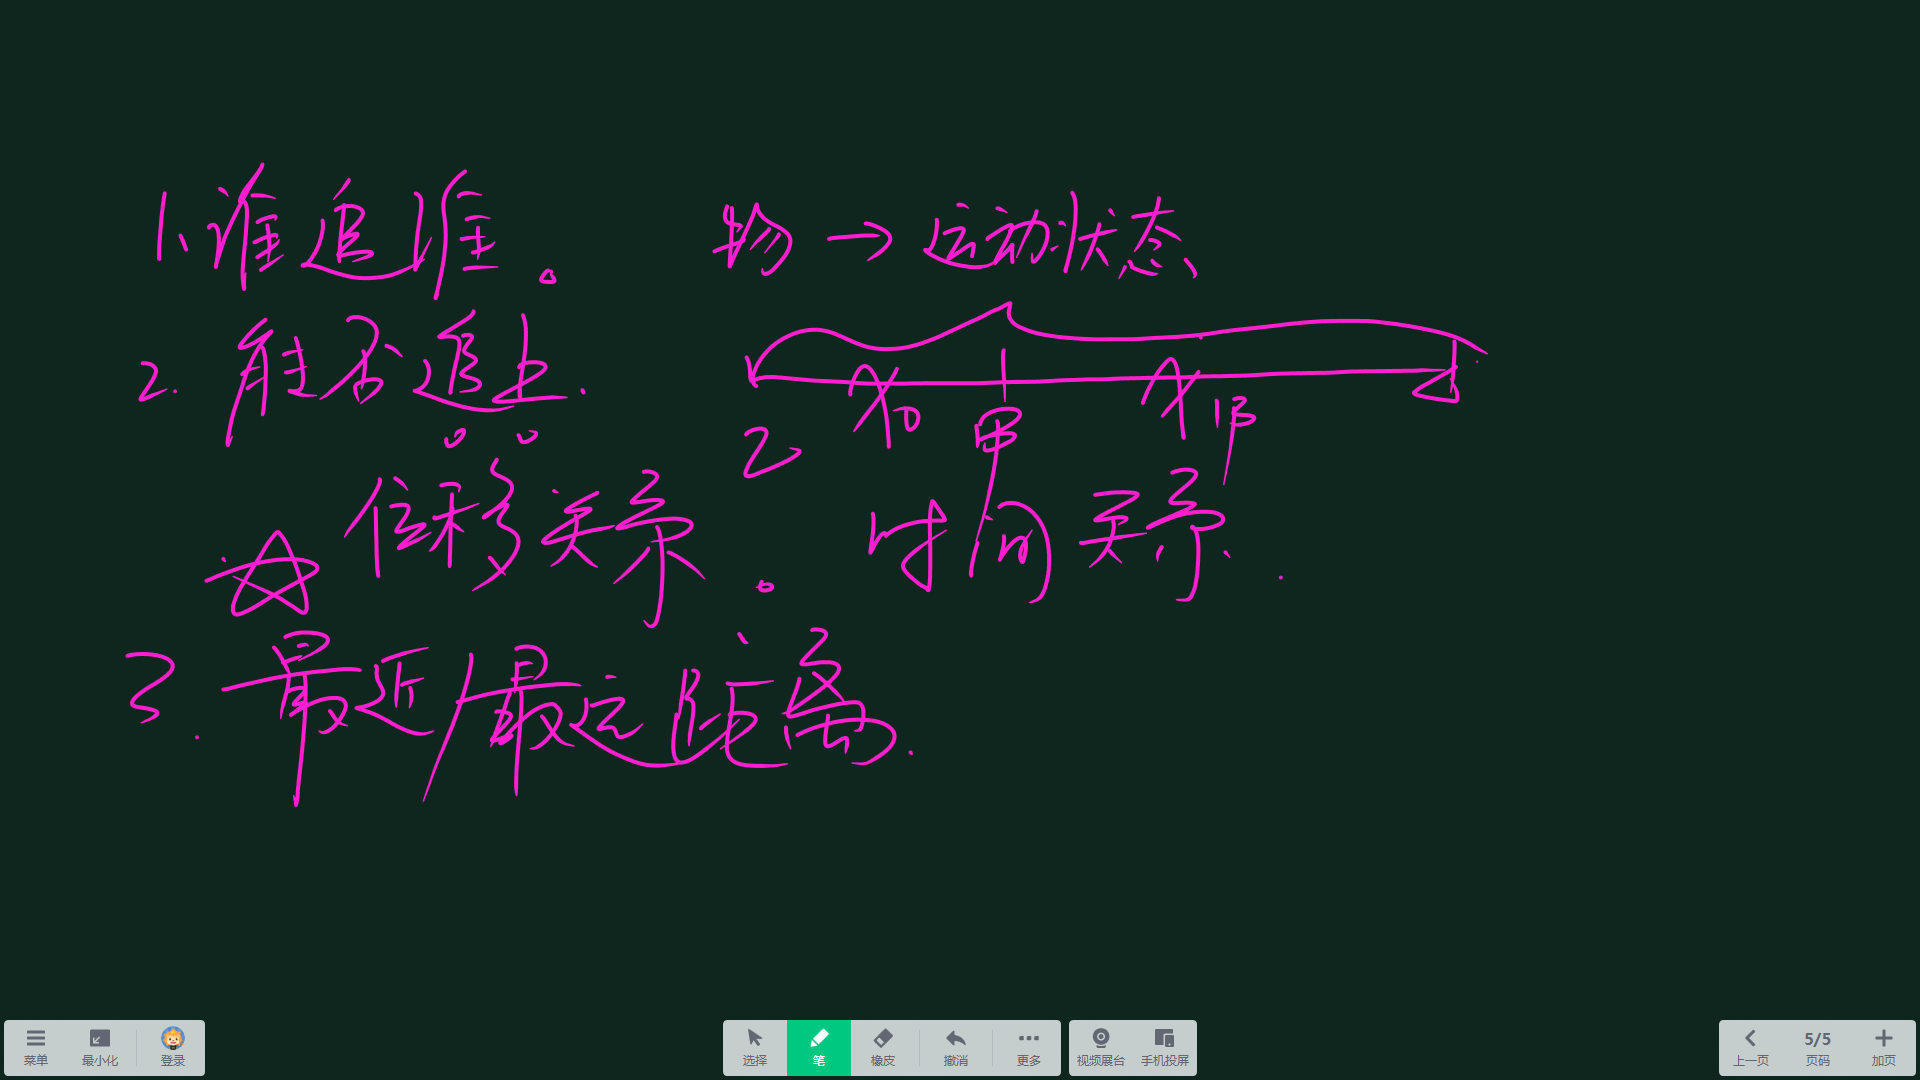 1.谁追谁。 物→运动状态
2.能否追上.
x₀ x甲
乙 甲
☆位移关系。时间关系.
3.最近/最远距离.
菜单 最小化 登录 选择 笔 橡皮 撤消 更多 视频展台 手机投屏 上一页 5/5 页码 加页